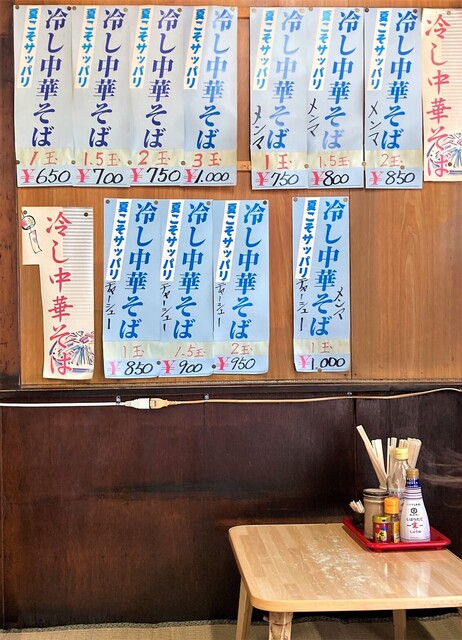 夏こそサッパリ
冷し中華そば
1玉
¥650
夏こそサッパリ
冷し中華そば
1.5玉
¥700
夏こそサッパリ
冷し中華そば
2玉
¥750
夏こそサッパリ
冷し中華そば
3玉
¥1.000
夏こそサッパリ
冷し中華そば
メンマ
1玉
¥750
夏こそサッパリ
冷し中華そば
メンマ
1.5玉
¥800
夏こそサッパリ
冷し中華そば
メンマ
2玉
¥850
冷し中華そば
冷し中華そば
夏こそサッパリ
冷し中華そば
チャーシュー
1玉
¥850
夏こそサッパリ
冷し中華そば
チャーシュー
1.5玉
¥900
夏こそサッパリ
冷し中華そば
チャーシュー
2玉
¥950
夏こそサッパリ
冷し中華そば
チャーシュー
メンマ
1玉
¥1.000